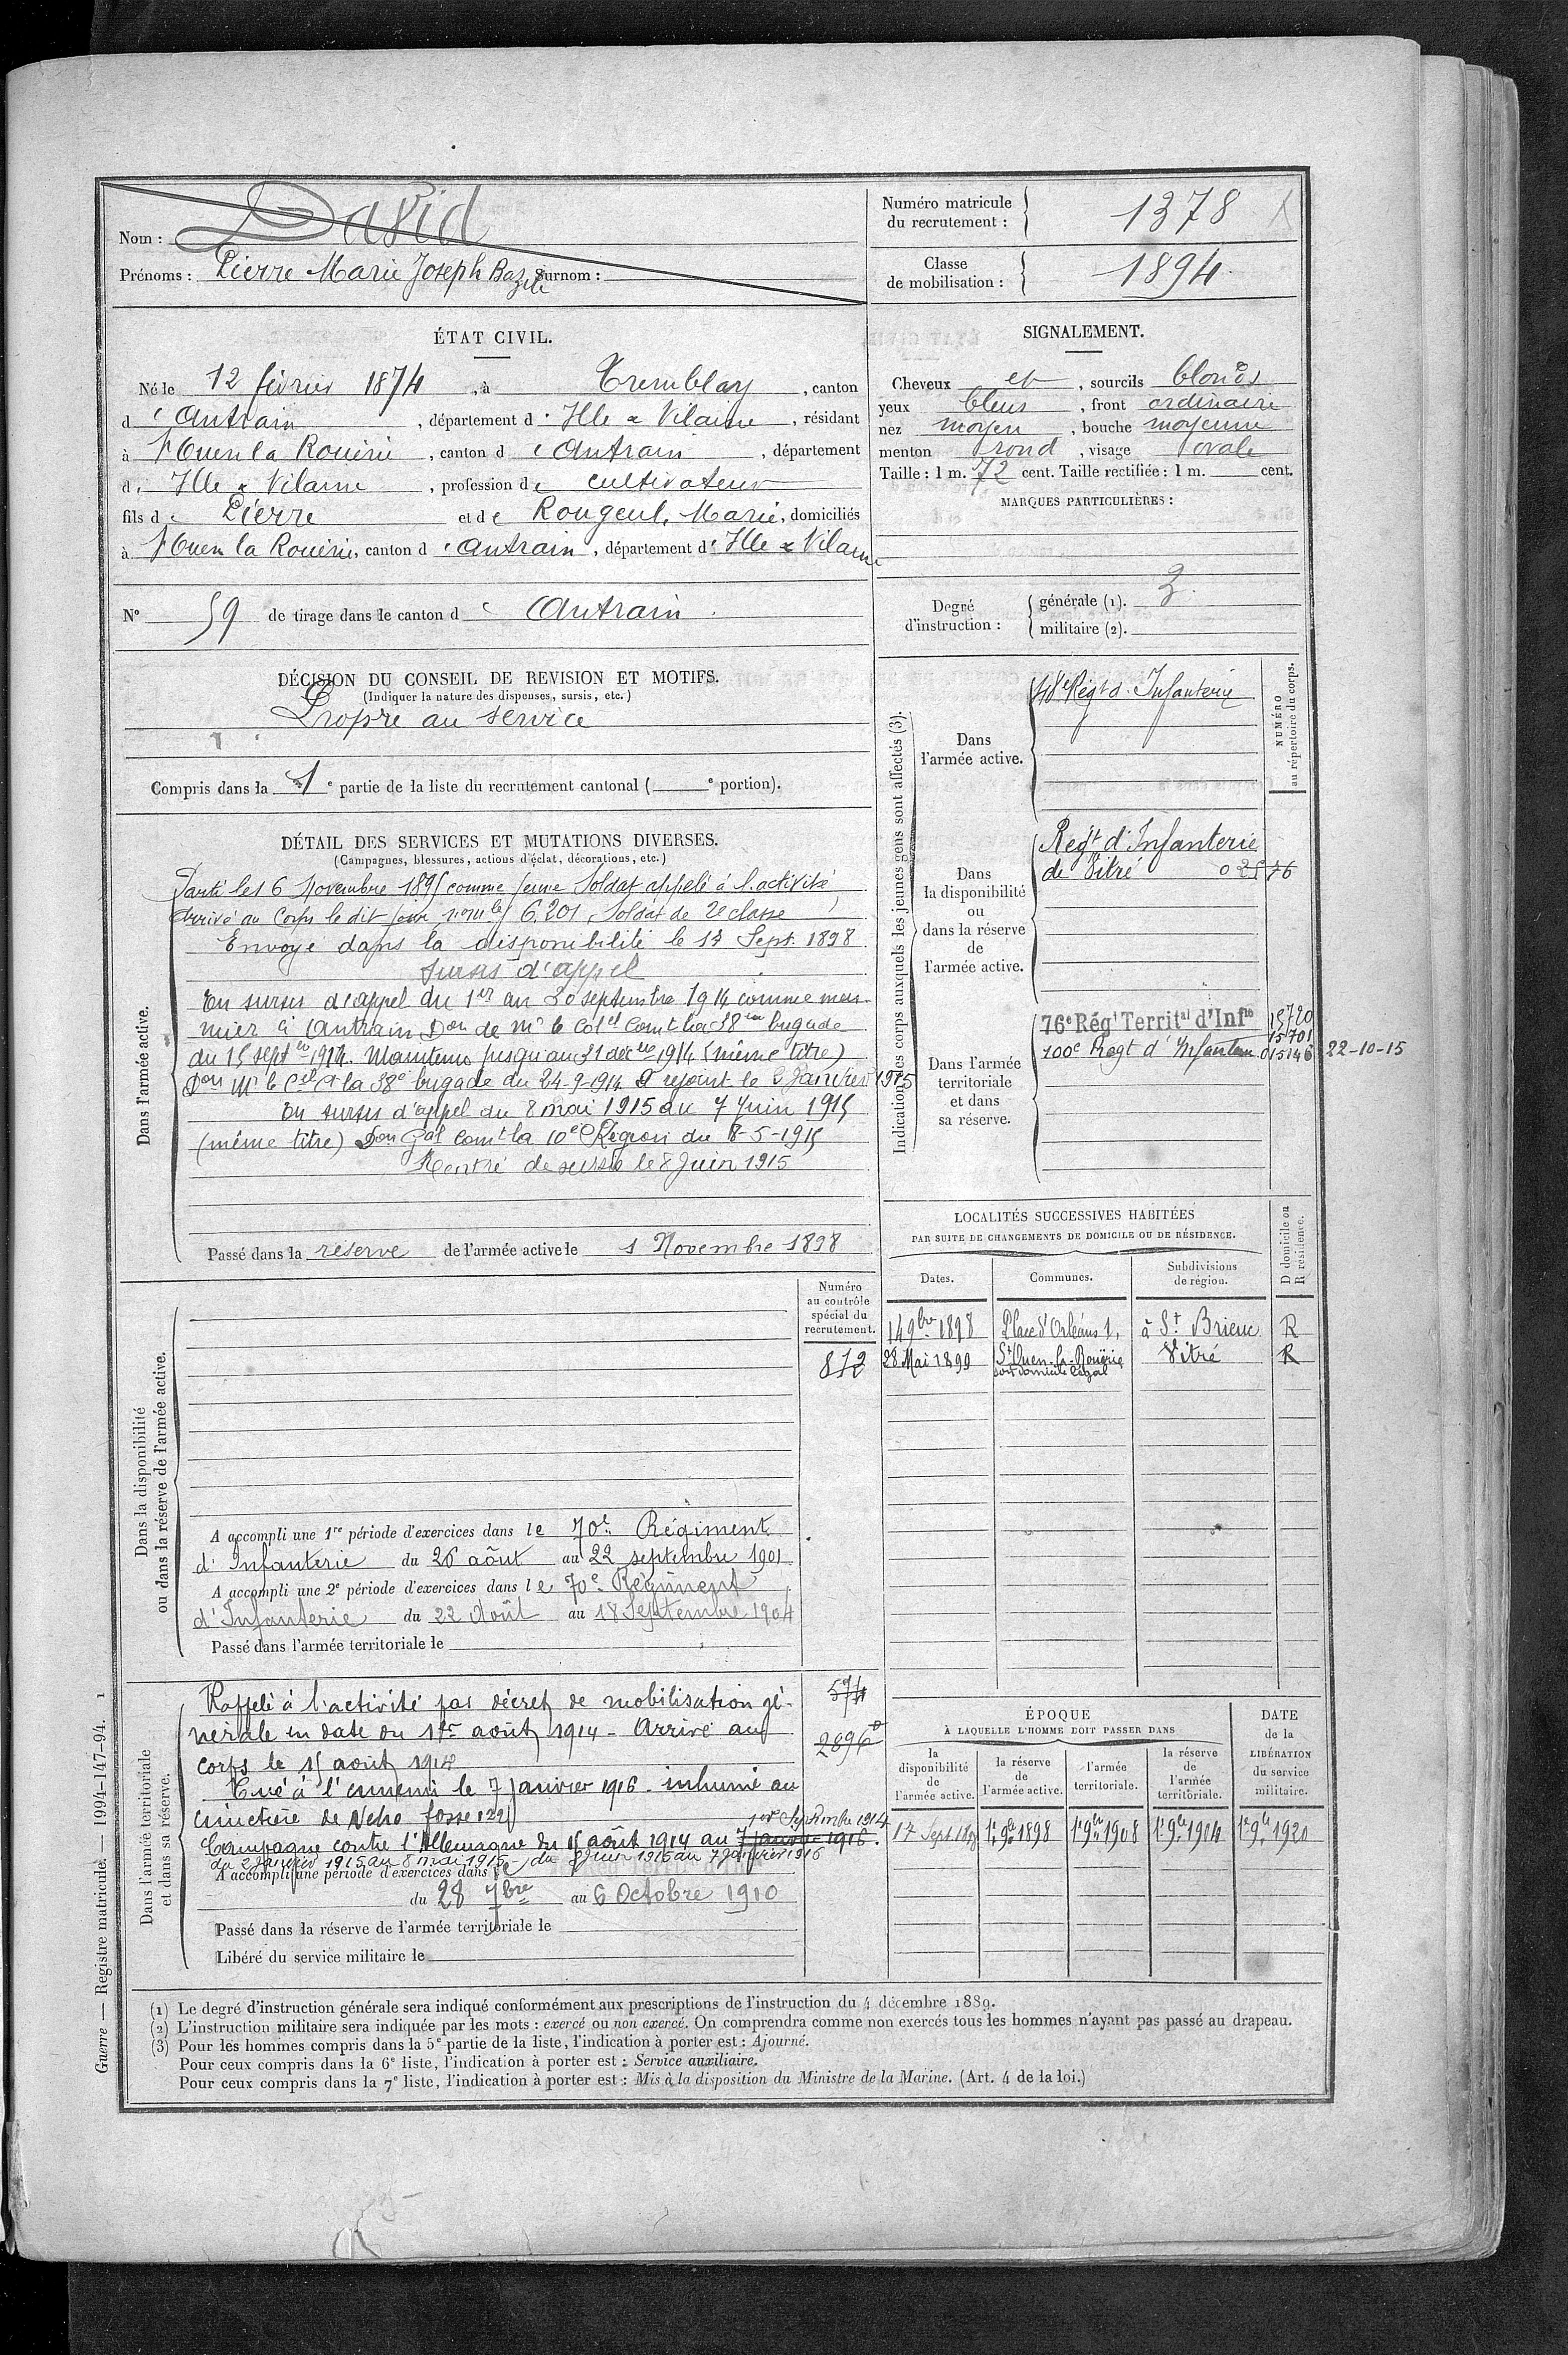 Nom : David
Prénoms : Pierre Marie Joseph Bazile Surnom :
Numéro matricule du recrutement : 1378
Classe de mobilisation : 1894
ÉTAT CIVIL.
Né le 12 février 1874, à Tremblay, canton
d'Antrain, département d'Ille & Vilaine, résidant
à St Ouen la Rouërie, canton d'Antrain, département
d'Ille & Vilaine, profession de cultivateur
fils de Pierre et de Rougeul, Marie, domiciliés
à St Ouen la Rouërie, canton d'Antrain, département d'Ille & Vilaine
N° 59 de tirage dans le canton d'Antrain.
SIGNALEMENT.
Cheveux et, sourcils blonds
yeux bleus, front ordinaire
nez moyen, bouche moyenne
menton rond, visage ovale
Taille : 1 m. 72 cent. Taille rectifiée : 1 m. cent.
MARQUES PARTICULIÈRES :
Degré d'instruction : générale (1). 3
militaire (2).
DÉCISION DU CONSEIL DE REVISION ET MOTIFS.
(Indiquer la nature des dispenses, sursis, etc.)
Propre au service
Compris dans la 1e partie de la liste du recrutement cantonal ( e portion).
DÉTAIL DES SERVICES ET MUTATIONS DIVERSES.
(Campagnes, blessures, actions d'éclat, décorations, etc.)
Dans l'armée active.
Parti le 16 Novembre 1895 comme jeune Soldat appelé à l'activité
Arrivé au Corps le dit jour, nom le 6.201, Soldat de 2e classe
Envoyé dans la disponibilité le 17 Sept. 1898
Sursis d'appel
En sursis d'appel du 1er au 20 septembre 1914 comme meu-
nier à Antrain Don de Mr le Colel Comt la 38me brigade
du 15 septbre 1914. Maintenu jusqu'au 31 decbre 1914 (même titre)
Don Mr le Cel Ct la 38e brigade du 24-9-1914 A rejoint le 2 Janvier 1915
En sursis d'appel du 8 mai 1915 au 7 Juin 1915
(même titre) Don Gal Comt la 10e Région du 8-5-1915
Rentré de sursis le 8 Juin 1915
Passé dans la réserve de l'armée active le 1 Novembre 1898
Indication des corps auxquels les jeunes gens sont affectés (3).
NUMÉRO au répertoire du corps.
Dans l'armée active.
48e Régt d'Infanterie
Dans la disponibilité ou dans la réserve de l'armée active.
Regt d'Infanterie
de Vitré 02576
Dans l'armée territoriale et dans sa réserve.
76e Régt Territal d'Infie 15720
15701
100e Regt d'Infanterie 015146 22-10-15
LOCALITÉS SUCCESSIVES HABITÉES
PAR SUITE DE CHANGEMENTS DE DOMICILE OU DE RÉSIDENCE.
Dates. Communes. Subdivisions de région. D domicile ou R résidence.
14 9bre 1898 Place d'Orléans 1, à St Brieuc R
28 Mai 1899 St Ouen-la-Rouërie Vitré R
son domicile légal
Dans la disponibilité ou dans la réserve de l'armée active.
Numéro au contrôle spécial du recrutement.
812
A accompli une 1re période d'exercices dans le 70e Régiment
d'Infanterie du 26 août au 22 septembre 1901
A accompli une 2e période d'exercices dans le 70e Régiment
d'Infanterie du 22 Août au 18 Septembre 1904
Passé dans l'armée territoriale le
Dans l'armée territoriale et dans sa réserve.
574
2896
Rappelé à l'activité par décret de mobilisation gé-
nérale en date du 1er août 1914 - Arrivé au
corps le 15 août 1914
Tué à l'ennemi le 7 janvier 1916 - inhumé au
cimetière de fosse 129
Campagne contre l'Allemagne du 15 août 1914 au 7 janvier 1916.
1er Septembre 1914
du 2 Janvier 1915 au 8 mai 1915 - du 8 Juin 1915 au 7 Janvier 1916
A accompli une période d'exercices dans le
du 28 7bre au 6 Octobre 1910
Passé dans la réserve de l'armée territoriale le
Libéré du service militaire le
ÉPOQUE
À LAQUELLE L'HOMME DOIT PASSER DANS
DATE de la LIBÉRATION du service militaire.
la disponibilité de l'armée active. la réserve de l'armée active. l'armée territoriale. la réserve de l'armée territoriale.
17 Sept 1898 1er 9bre 1898 1er 9bre 1908 1er 9bre 1914 1er 9bre 1920
Guerre — Registre matricule. — 1994-147-94. 1
(1) Le degré d'instruction générale sera indiqué conformément aux prescriptions de l'instruction du 4 décembre 1889.
(2) L'instruction militaire sera indiquée par les mots : exercé ou non exercé. On comprendra comme non exercés tous les hommes n'ayant pas passé au drapeau.
(3) Pour les hommes compris dans la 5e partie de la liste, l'indication à porter est : Ajourné.
Pour ceux compris dans la 6e liste, l'indication à porter est : Service auxiliaire.
Pour ceux compris dans la 7e liste, l'indication à porter est : Mis à la disposition du Ministre de la Marine. (Art. 4 de la loi.)